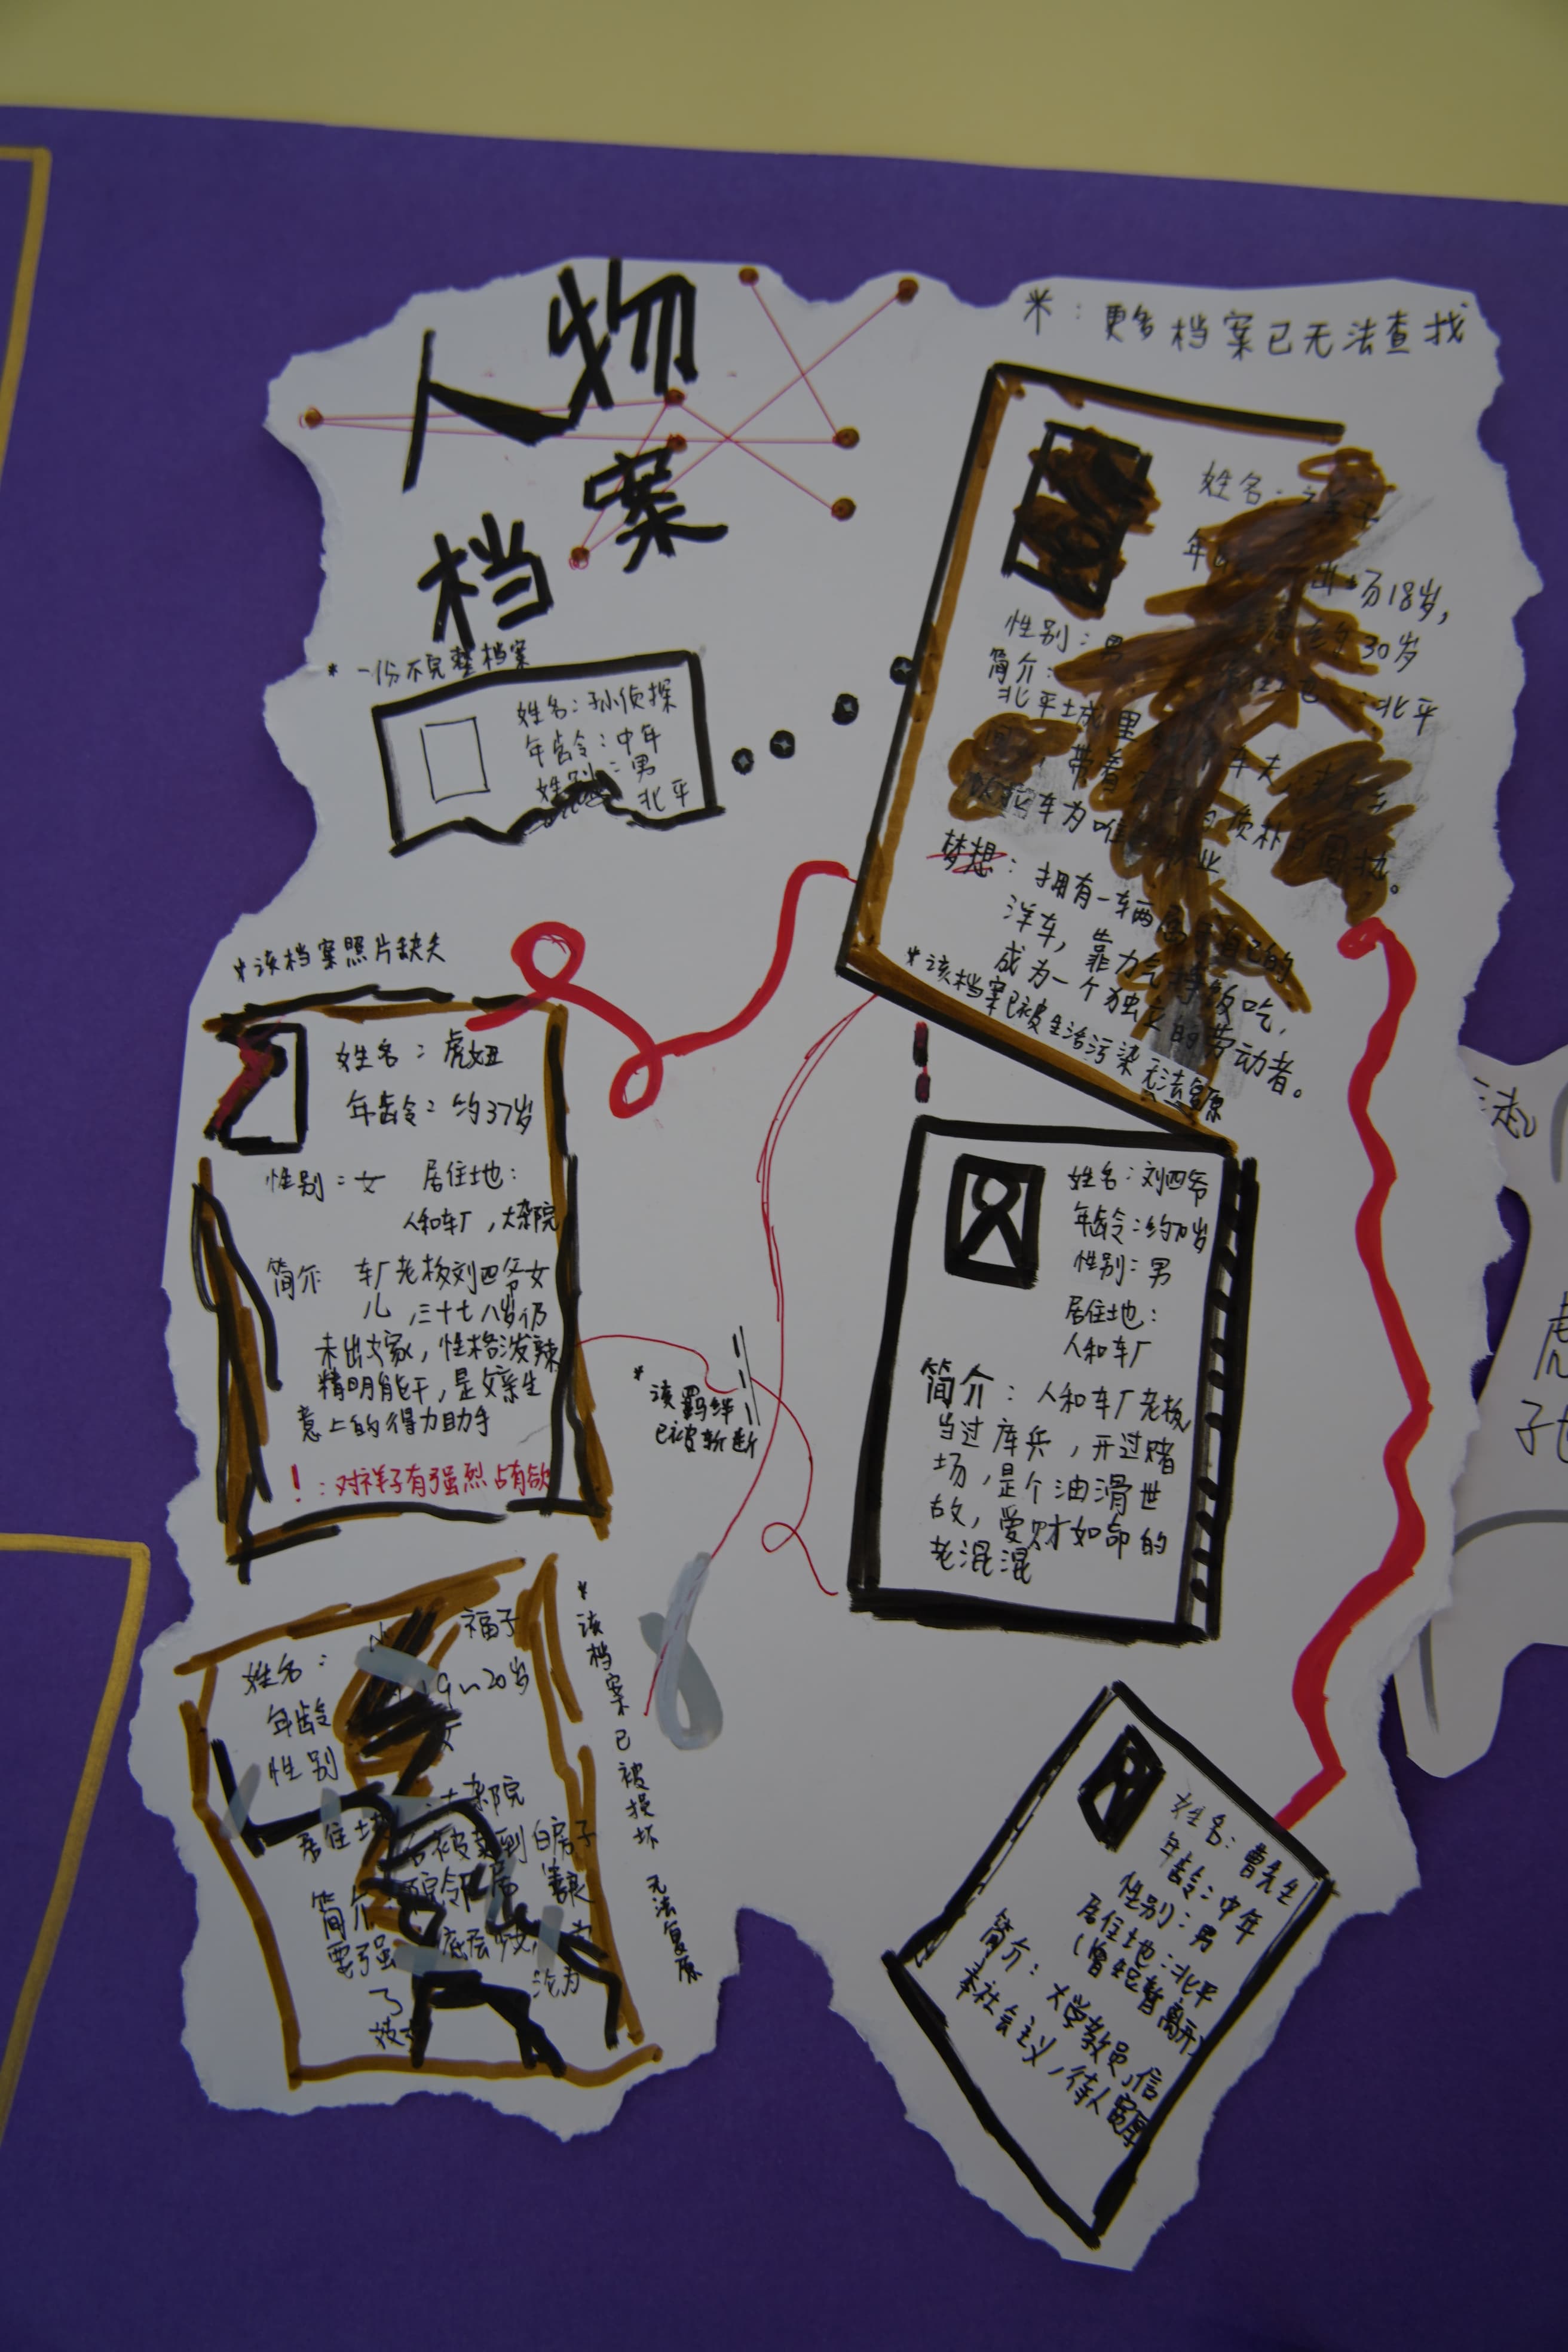 人物
档案
*：更多档案已无法查找
* 一份不完整档案
姓名：孙侦探
年龄：中年
性别：男
北平
姓名：祥子
年
出场18岁，
约30岁
性别：男
：北平
简介：
北平城里
车夫
，带着
质朴
固执。
以拉车为唯
业
梦想：拥有一辆属于自己的
洋车，靠力气挣饭吃，
成为一个独立的劳动者。
*该档案已被生活污染无法复原
*该档案照片缺失
姓名：虎妞
年龄：约37岁
性别：女 居住地：
人和车厂，大杂院
简介 车厂老板刘四爷女
儿，三十七八岁仍
未出嫁，性格泼辣
精明能干，是父亲生
意上的得力助手
！：对祥子有强烈占有欲
*该羁绊
已被斩断
姓名：刘四爷
年龄：约70岁
性别：男
居住地：
人和车厂
简介：人和车厂老板
当过库兵，开过赌
场，是个油滑世
故，爱财如命的
老混混
姓名：小福子
年龄 19~20岁
性别 女
居住地 大杂院
后被卖到白房子
简介 邻居 善良
要强 底层
沦为
了
妓
*该档案已被损坏 无法复原
姓名：曹先生
年龄：中年
性别：男
居住地：北平
（曾短暂离开）
简介：大学教员，信
奉社会主义，待人宽厚